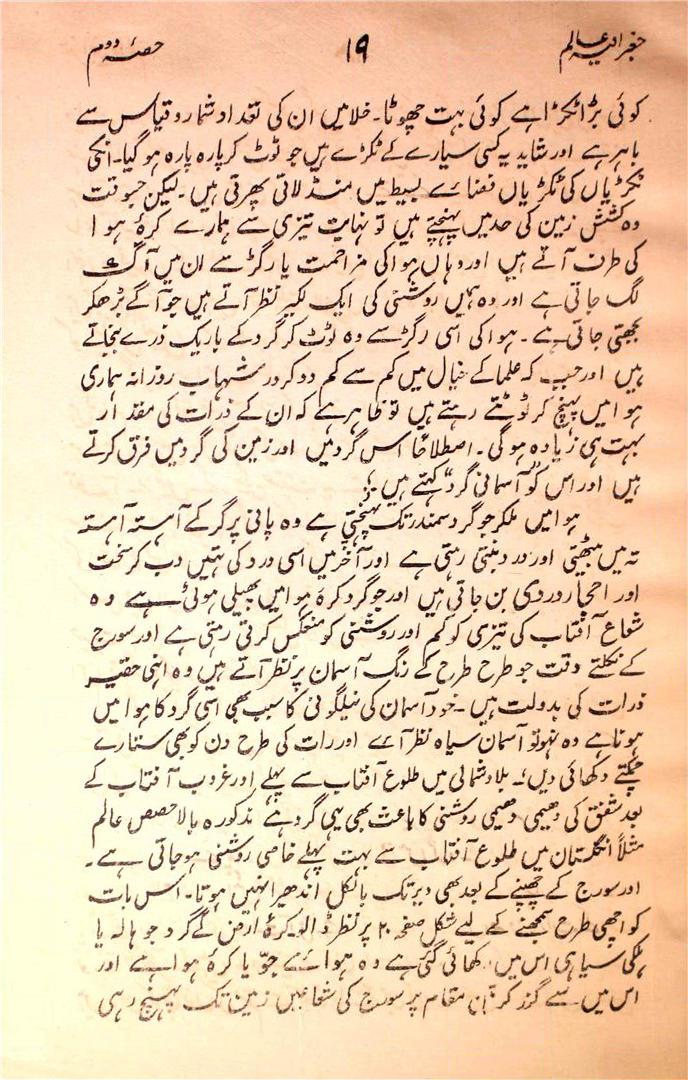 جغرافیہ عالم ۱۹ حصۂ دوم
کوئی بڑا ٹکڑا ہے کوئی بہت چھوٹا۔ خلا میں ان کی تعداد شمار و قیاس سے
باہر ہے اور شاید یہ کسی سیارے کے ٹکڑے ہیں جو ٹوٹ کر پارہ پارہ ہو گیا۔ انکی
ٹکڑیاں کی ٹکڑیاں فضاے بسیط میں منڈلاتی پھرتی ہیں۔ لیکن جسوقت
وہ کشش زمین کی حد میں پہنچتے ہیں تو نہایت تیزی سے ہمارے کرۂ ہوا
کی طرف آتے ہیں اور وہاں ہوا کی مزاحمت یا رگڑ سے ان میں آگ
لگ جاتی ہے اور وہ ہمیں روشنی کی ایک لکیر نظر آتے ہیں جو آگے بڑھکر
بجھتی جاتی ہے۔ ہوا کی اسی رگڑ سے وہ ٹوٹ کر گرد کے باریک ذرے بنجاتے
ہیں اور جب کہ علما کے خیال میں کم سے کم دو کرور شہاب روزانہ ہماری
ہوا میں پہنچ کر ٹوٹتے رہتے ہیں تو ظاہر ہے کہ ان کے ذرات کی مقدار
بہت ہی زیادہ ہوگی۔ اصطلاحاً اس گرد میں اور زمین کی گرد میں فرق کرتے
ہیں اور اس کو "آسمانی گرد" کہتے ہیں
ہوا میں ملکر جو گرد سمندر تک پہنچتی ہے وہ پانی پر گر کے آہستہ آہستہ
تہ میں بیٹھتی اور درد بنتی رہتی ہے اور آخر میں اسی درد کی تہیں دب کر سخت
اور احجار دردی بن جاتی ہیں اور جو گرد کرۂ ہوا میں پھیلی ہوئی ہے وہ
شعاع آفتاب کی تیزی کو کم اور روشنی کو منعکس کرتی رہتی ہے اور سورج
کے نکلتے وقت جو طرح طرح کے رنگ آسمان پر نظر آتے ہیں وہ انہی حقیر
ذرات کی بدولت ہیں۔ خود آسمان کی نیلگونی کا سبب بھی اسی گرد کا ہوا میں
ہونا ہے وہ نہو تو آسمان سیاہ نظر آے اور رات کی طرح دن کو بھی ستارے
چمکتے دکھائی دیں۔ بلاد شمالی میں طلوع آفتاب سے پہلے اور غروب آفتاب کے
بعد شفق کی دھیمی دھیمی روشنی کا باعث بھی یہی گرد ہے مذکورہ بالا حصص عالم
مثلاً انگلستان میں طلوع آفتاب سے بہت پہلے خاصی روشنی ہو جاتی ہے۔
اور سورج کے چھپنے کے بعد بھی دیر تک بالکل اندھیرا نہیں ہوتا۔ اس بات
کو اچھی طرح سمجھنے کے لیے شکل صفحہ ۲۰ پر نظر ڈالو۔ کرۂ ارض کے گرد جو ہالہ یا
ہلکی سیاہی اس میں دکھائی گئی ہے وہ ہواے جوّ یا کرۂ ہوا ہے اور
اس میں سے گزر کر ان مقام پر سورج کی شعاعیں زمین تک پہنچ رہی